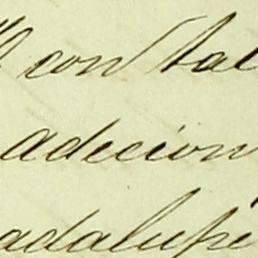 con tal
adicion
adalupe